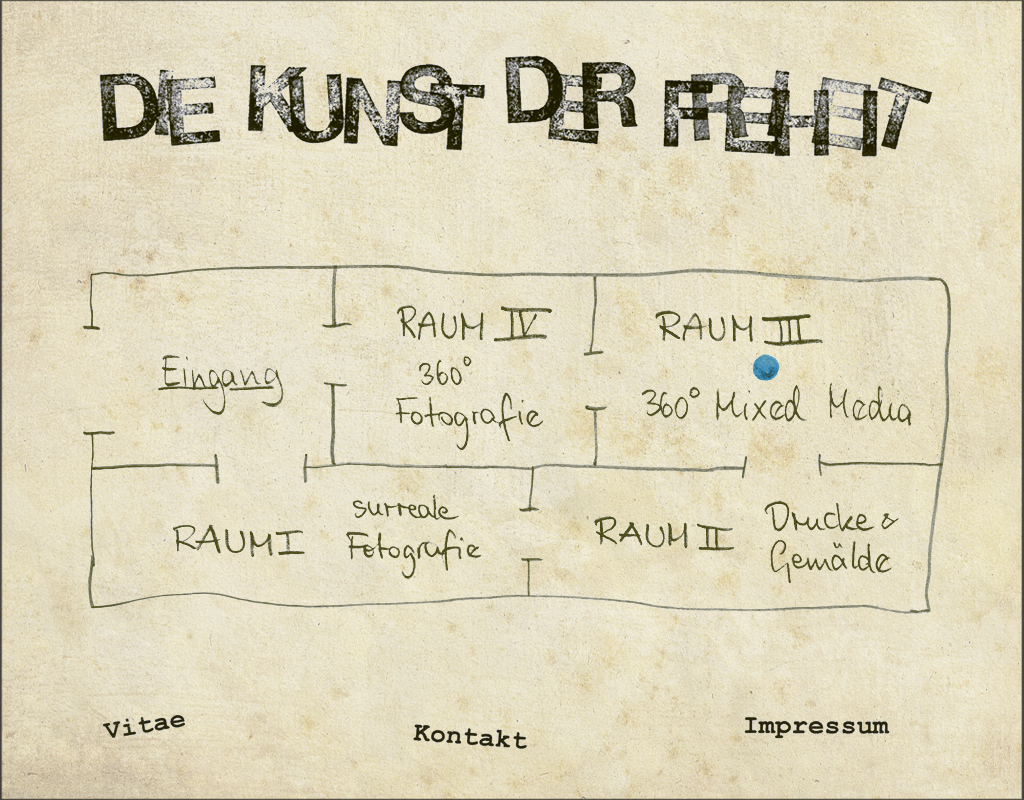 DIE KUNST DER FREIHEIT
RAUM IV
RAUM III
Eingang
360°
Fotografie
360° Mixed Media
RAUM I
surreale
Fotografie
RAUM II
Drucke &
Gemälde
Vitae
Kontakt
Impressum